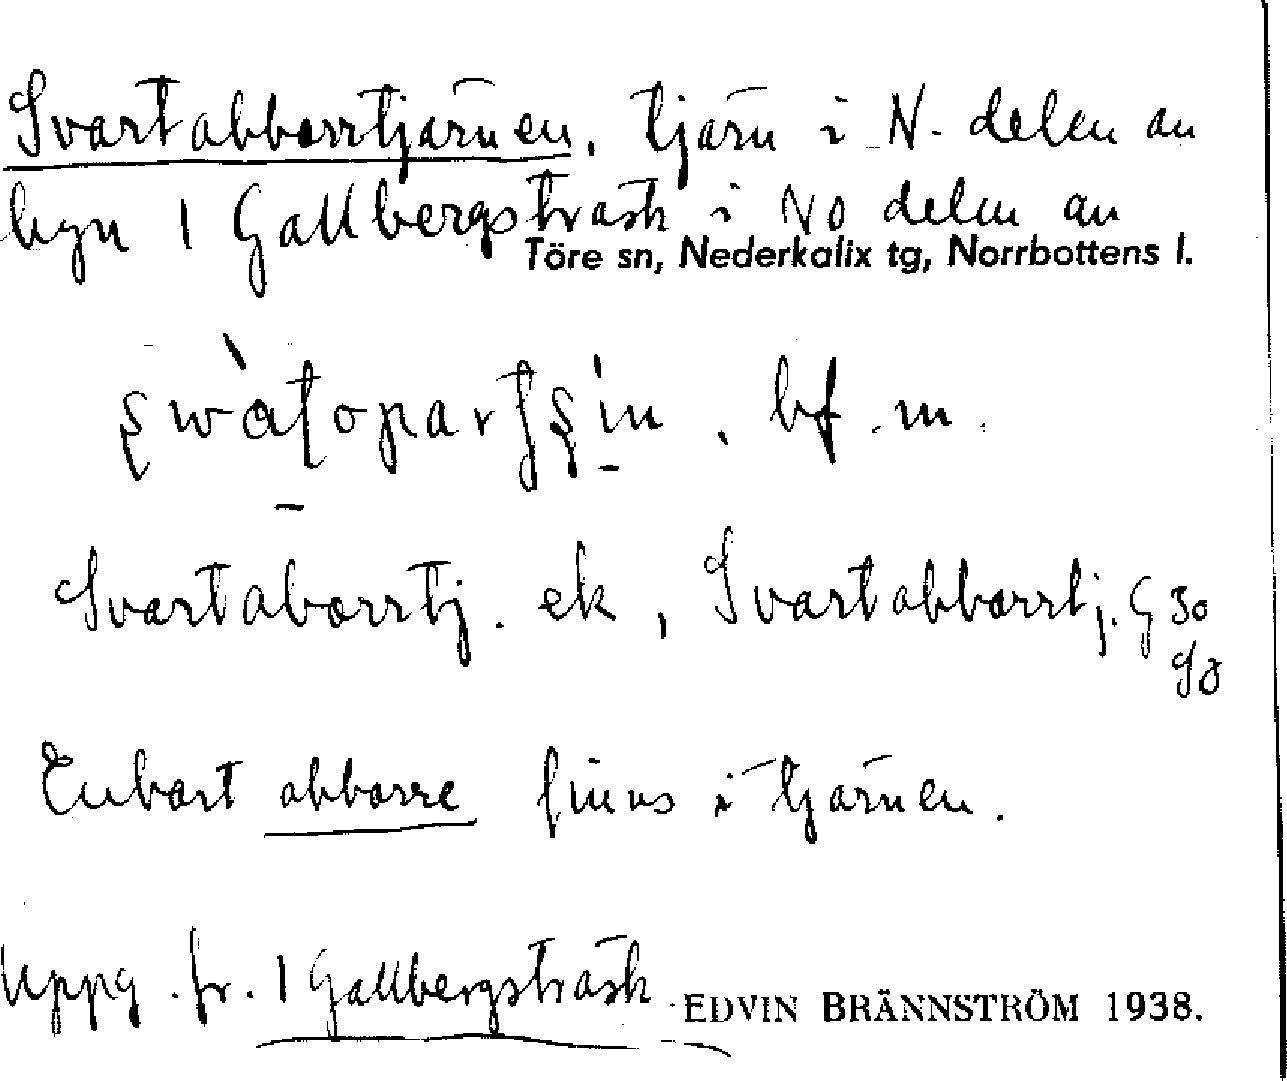 Svartabborrtjärnen, tjärn i N. delen av
byn 1 Gallbergsträsk i NO delen av
Töre sn, Nederkalix tg, Norrbottens l.
bf. m.
Svartaborrtj. ek, Svartabborrtj. G 30
Enbart abborre finns i tjärnen.
Uppg. fr. 1 Gallbergsträsk
EDVIN BRÄNNSTRÖM 1938.